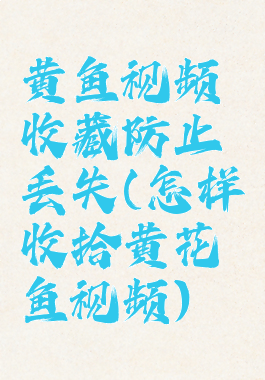 黄鱼视频
收藏防止
丢失(怎样
收拾黄花
鱼视频)